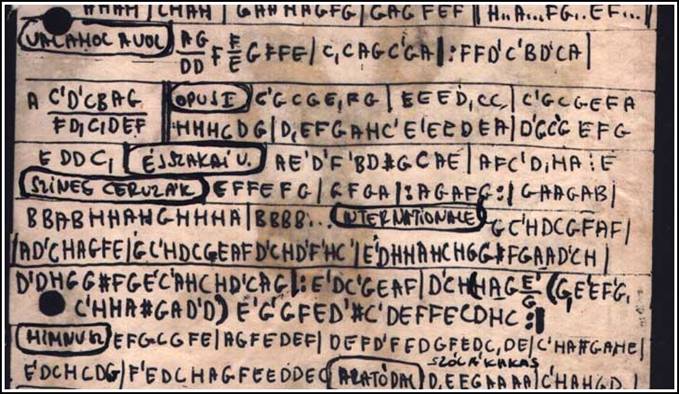 AHAH | CHAH | GAHHAGFG | GAG FEF || H..A...FG..EF...||
VALAHOL AVOL AG F F G#FE | C, CAGC'GA |: FFD'C'BD'CA |
DD E
A C'D'CBAG OPUS I C'GCGE,FG | EEED,CC, | C'GCGEEFA
FD,C,DEF HHHGDG | D,EFGAHC'E'EEDEA | D'GC'G EFG
EDDC, | ÉJSZAKAI U. AE'D'F'BD#GCAE | AFC'D,HA:E
SZÍNES CERUZÁK EFFEFG | GFGA |: AGAFG :| GAAGAB |
BBABHHAHGHHHA | BBBB... INTERNATIONALE GC'HDCGFAF |
| AD'C'HAGFE | GC'HDCGEAFD'CHD'F'HC' | E'DHHAHCHGG#FGAAD'CH |
D'D'HGG#FGE'C'AHCHD'CAG |: E'DC'GEAF | D'CH (HAG E' (G,E'EFG,
G
C'HHA#GAD'D') E'G'G'FED'#C'DEFFECDHC :|
HIMNUSZ EFGCGFE | AGFEDEF | DEFD'FEDGFEDC,DE | C'HA#GAHE |
SZÓL A KAKAS
E'DCHCDG | F'EDCHAGFEEDDEC ALTATÓDAL D,EEGAAAA | C'HAHGD |